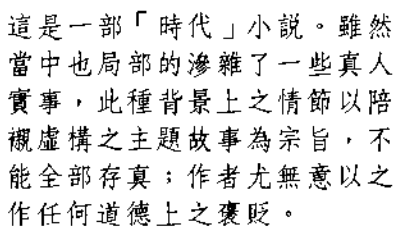 這是一部「時代」小説。雖然
當中也局部的滲雜了一些真人
實事，此種背景上之情節以陪
襯虛構之主題故事為宗旨，不
能全部存真；作者尤無意以之
作任何道德上之褒貶。